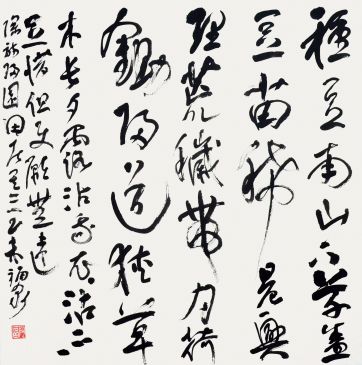 種豆南山下草盛
豆苗稀晨興
理荒穢帶月荷
鋤歸道狹草
木長夕露沾我衣沾不
足惜但使願無違
園田居其三